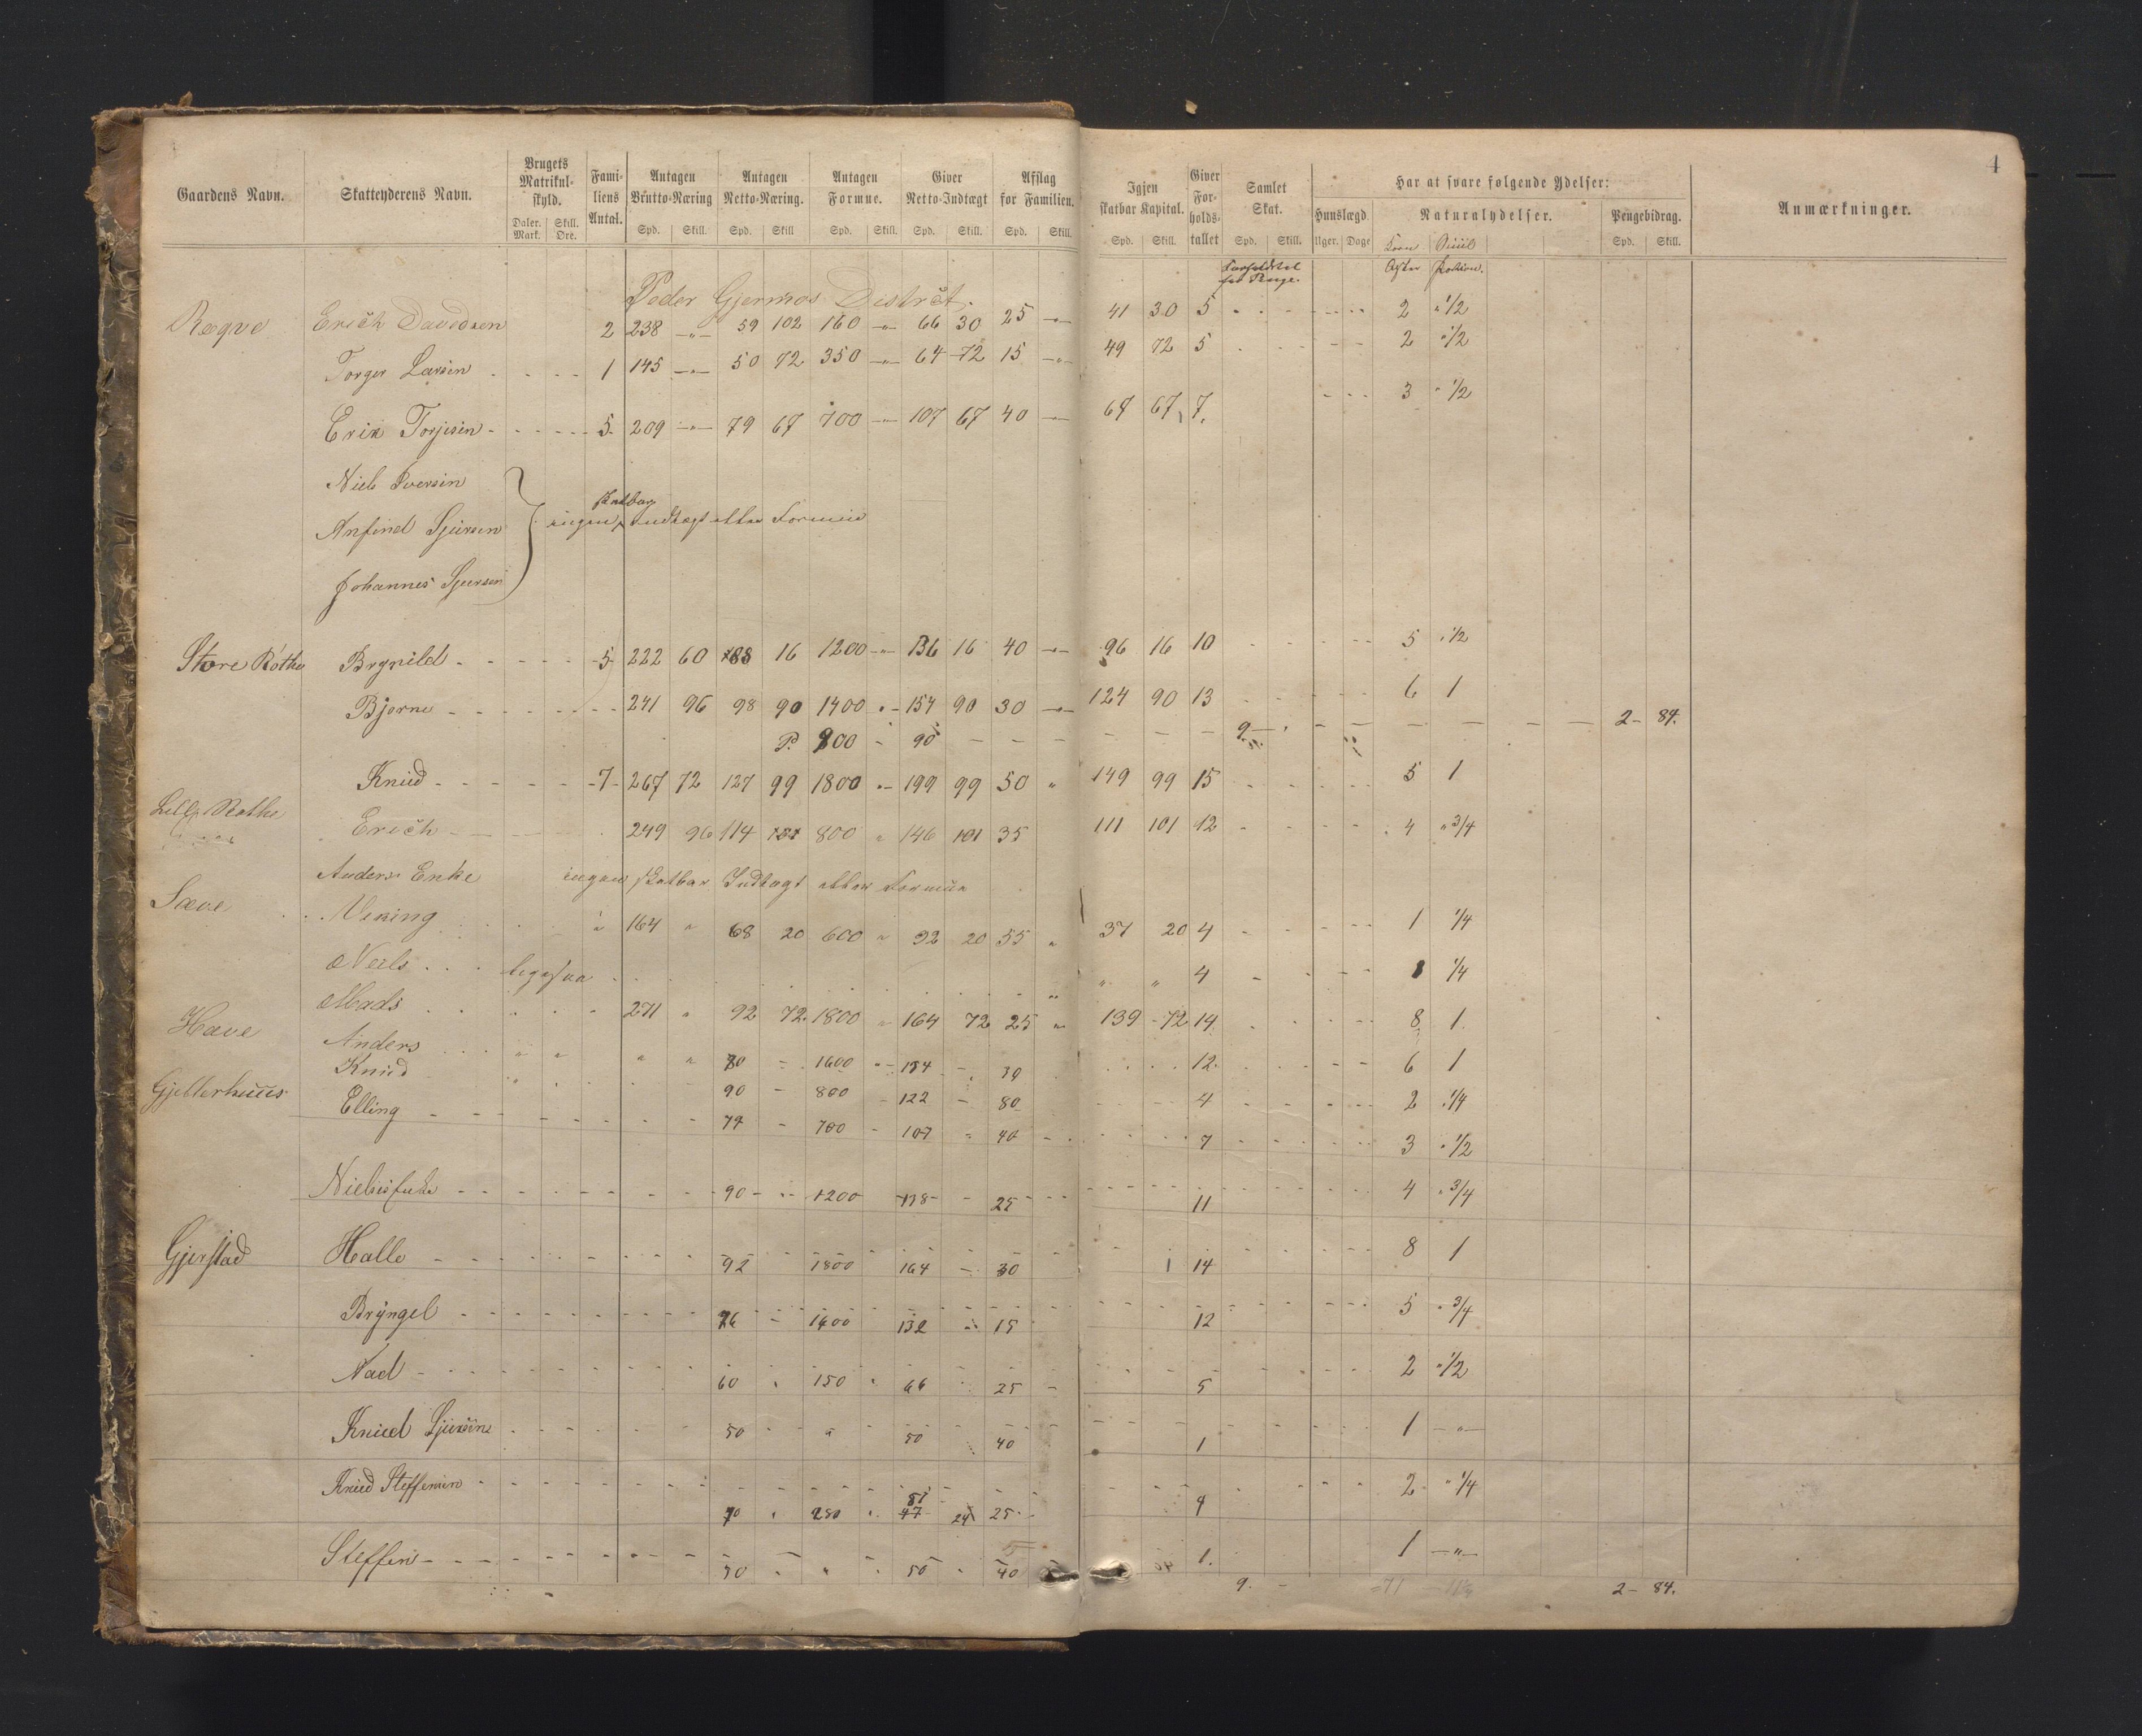 4
Gaardens Navn. Skatteyderens Navn. Brugets Matrikul-skyld. Fami-liens Antal. Antagen Brutto-Næring Antagen Netto-Næring. Antagen Formue. Giver Netto-Indtægt Afslag for Familien. Igjen skatbar Kapital. Giver For-holds-tallet Samlet Skat. Har at svare følgende Ydelser: Anmærkninger.
Hunslægd. Naturalydelser. Pengebidrag.
Daler. Mark. Skill. Øre. Spd. Skill. Spd. Skill Spd. Skill. Spd. Skill. Spd. Skill. Spd. Skill. Spd. Skill. Uger. Dage Korn Spd. Skill.
Peder Gjermos Distrět.
Røqve Erich Davidsen 2 238 -"- 59 102 160 -"- 66 30 25 -"- 41 30 5 2 " 1/2
Torger Larsen 1 145 -"- 50 72 350 -"- 64 72 15 -"- 49 72 5 2 " 1/2
Erik Torjesen 5 209 -"- 79 67 700 -"- 107 67 40 -"- 67 67 7. 3 " 1/2
Niels Iversen
Anfind Sjursen ingen skatbar Indtægt eller Formue
Johannes Sjursen
Store Røthe Brynild 5 222 60 88 16 1200 -"- 136 16 40 -"- 96 16 10 5 " 1/2
Bjørne 241 96 98 90 1400 "- 154 90 30 -"- 124 90 13 6 1
P. 900 - 90 - - - - - - 9 - - - - - - - 2 - 84.
Knud 7 267 72 127 99 1800 "- 199 99 50 " 149 99 15 5 1
Lille Røthe Erich 249 96 114 101 800 " 146 101 35 111 101 12 4 " 3/4
Anders Enke ingen skatbar Indtægt eller Formue
Sæve Viking 164 " 68 20 600 " 92 20 55 " 37 20 4 1 1/4
Neils " " 4 1 1/4
Mads 271 " 92 72 1800 " 164 72 25 " 139 72 14 8 1
Hæve Anders " " " " 70 - 1600 "- 134 - 12. 6 1
Knud 90 - 800 - 122 - 80 4 2 " 1/4
Gjelterhuus Elling 79 - 700 - 107 " 40 7 3 " 1/2
90 - 1200 138 - 25 11 4 " 3/4
Gjerstad Halle 92 1800 164 - 30 14 8 1
Brÿngel 76 - 1400 132 15 12 5 " 3/4
Nad 60 " 150 " 66 25 5 2 " 1/2
Knud Sjursen 50 " 50 40 1 1 -"-
Knud Steffensen 70 " 280 " 81 24 25 4 2 " 1/4
Steffen 50 " " 50 " 40 1. 1 -"-
9. - 2 - 84.